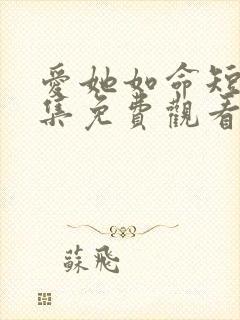 愛她如命短
集免費觀看
蘇飛